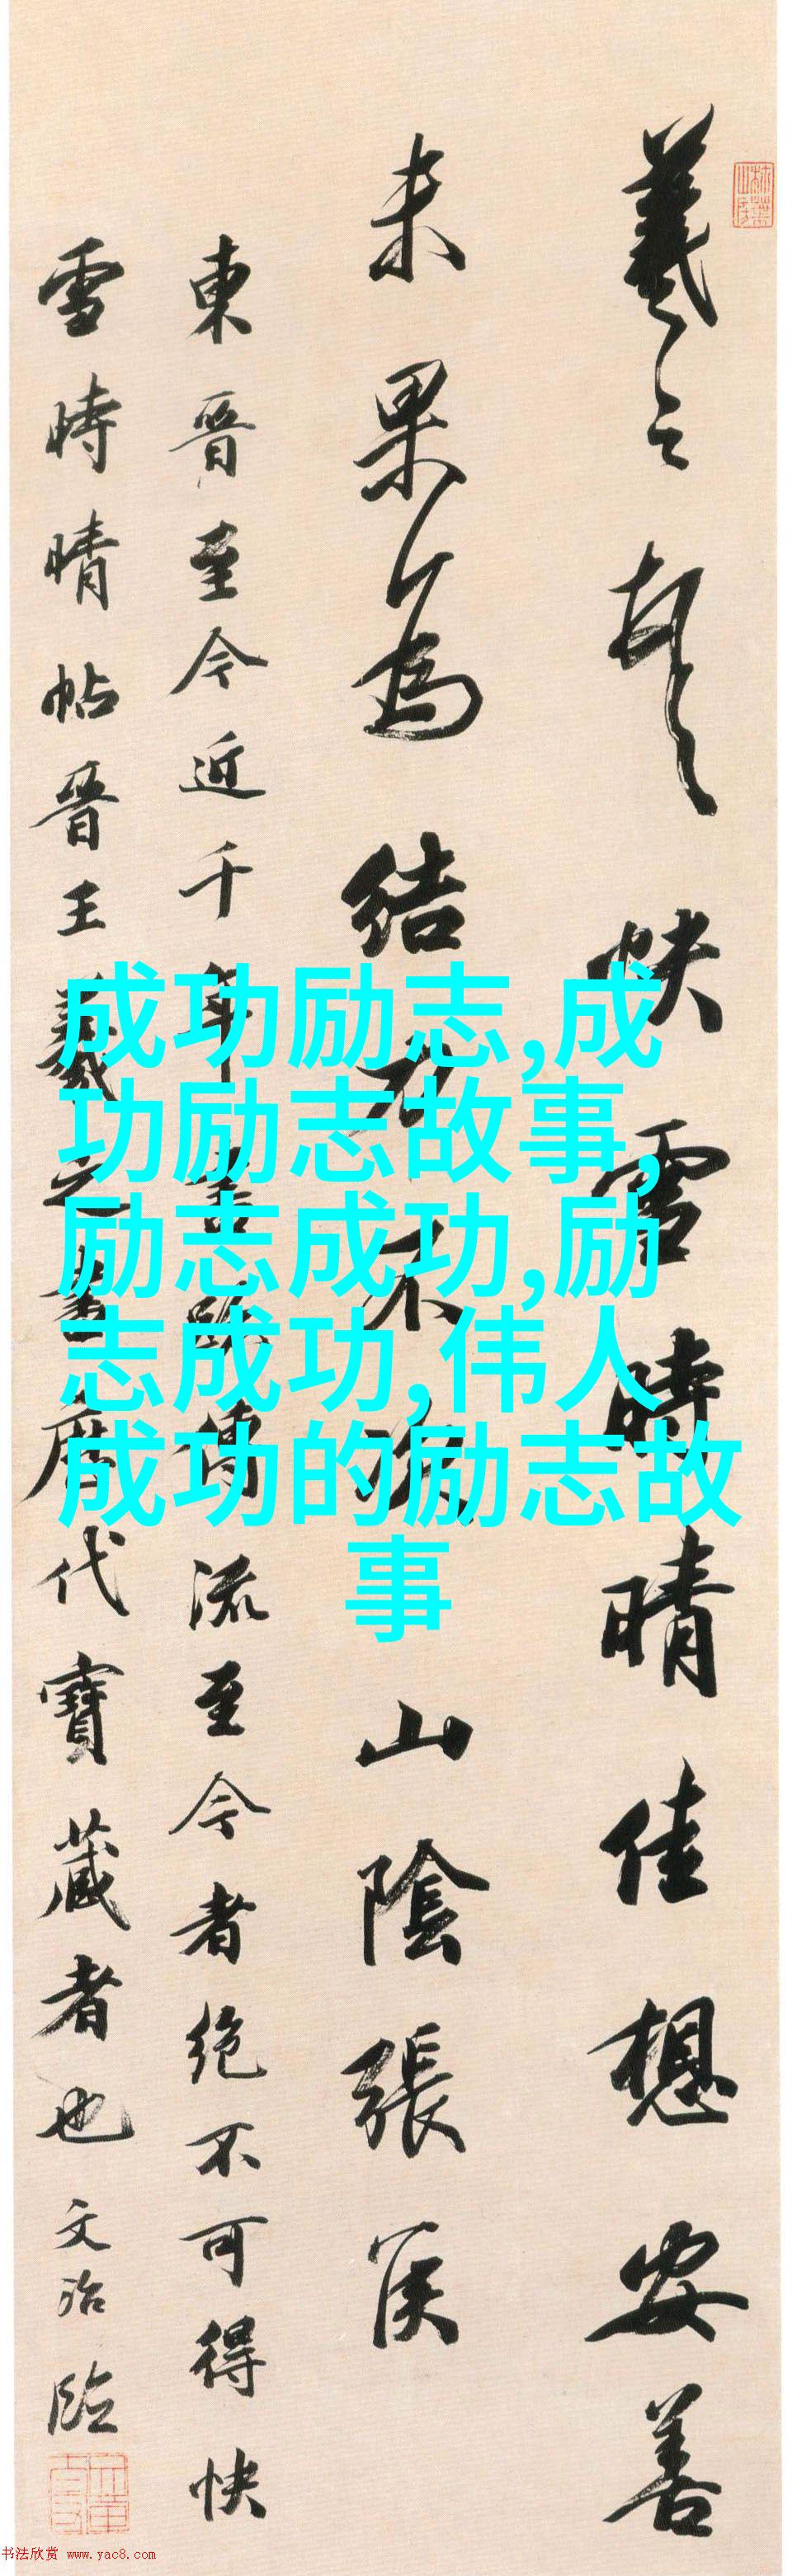 羲之頓首快雪時晴佳想安善
未果為結力不次山陰張侯
東晉至今近千年書跡傳流至今者絕不可得快
雪時晴帖晉王羲之書歷代寶藏者也文治臨
成功励志,成
功励志故事,
励志成功,励
志成功,伟人
成功的励志故
事
书法欣赏 www.yac8.com